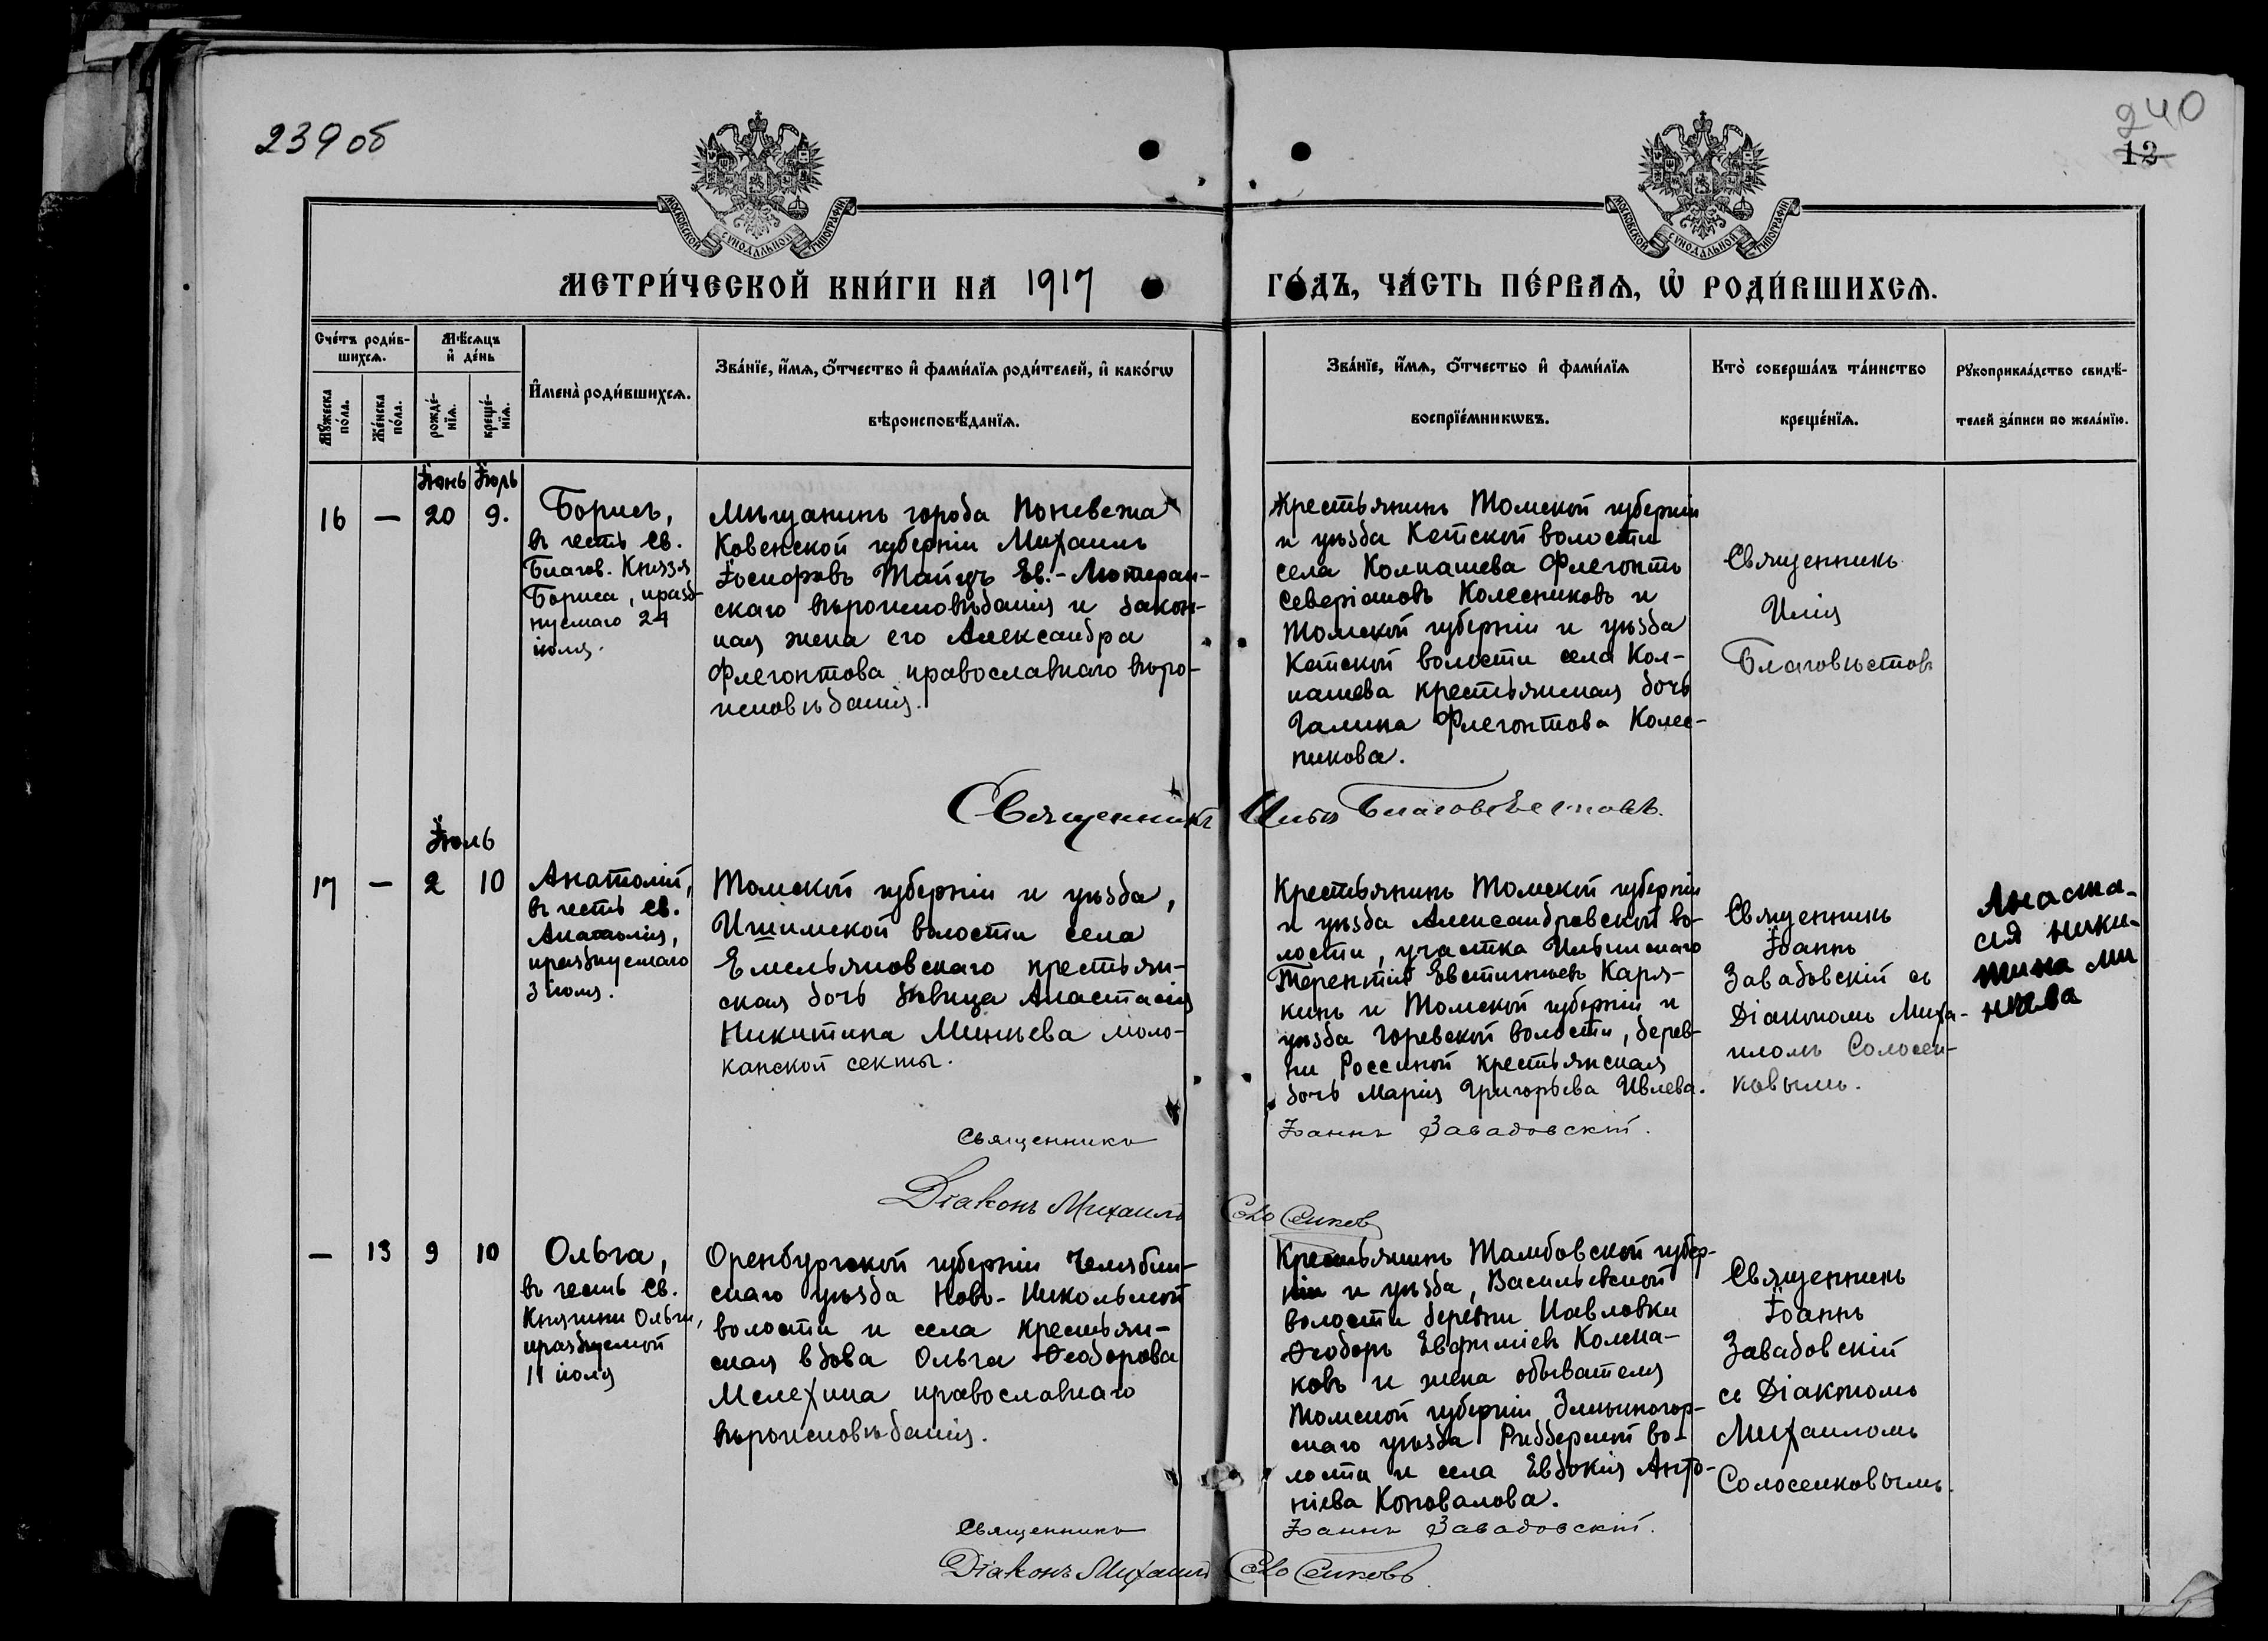 239 об
240
12
МОСКОВСКОЙ СѴНОДАЛЬНОЙ ТИПОГРАФІИ
МОСКОВСКОЙ СѴНОДАЛЬНОЙ ТИПОГРАФІИ
МЕТРИ́ЧЕСКОЙ КНИ́ГИ НА 1917 ГО́ДЪ, ЧА́СТЬ ПЕ́РВАѦ, Ѡ҆ РОДИ́ВШИХСѦ.
Сче́тъ роди́в-
шихсѧ.
Мѣ́сѧцъ
и҆ де́нь
Мꙋ́жеска
по́ла.
Же́нска
по́ла.
рожде́-
нїѧ.
креще́-
нїѧ.
И҆мена̀ роди́вшихсѧ.
Зва́нїе, и҆́мѧ, ѻ҆́тчество и҆ фами́лїѧ роди́телей, и҆ како́гѡ
вѣроисповѣ́данїѧ.
Зва́нїе, и҆́мѧ, ѻ҆́тчество и҆ фами́лїѧ
воспрїе́мникѡвъ.
Кто̀ соверша́лъ та́инство
креще́нїѧ.
Рꙋкоприкла́дство свидѣ́-
телей за́писи по жела́нїю.
Іюнь Іюль
16 — 20 9.
Борисъ,
въ честь св.
Благов. Князя
Бориса, празд-
нуемаго 24
іюля.
Мѣщанинъ города Поневежа
Ковенской губерніи Михаилъ
Іосифовъ Тайцъ Ев.-Лютеран-
скаго вѣроисповѣданія и закон-
ная жена его Александра
Флегонтова православнаго вѣро-
исповѣданія.
Крестьянинъ Томской губерніи
и уѣзда Кетской волости
села Колпашева Флегонтъ
Северіановъ Колесниковъ и
Томской губерніи и уѣзда
Кетской волости села Кол-
пашева крестьянская дочь
Галина Флегонтова Колес-
никова.
Священникъ
Илія
Благовѣстовъ
Священникъ Илья Благовѣстовъ.
Іюль
17 — 2 10
Анатолій,
въ честь св.
Анатолія,
празднуемаго
3 іюля.
Томской губерніи и уѣзда,
Ишимской волости села
Емельяновскаго крестьян-
ская дочь дѣвица Анастасія
Никитина Минѣева моло-
канской секты.
Крестьянинъ Томской губерніи
и уѣзда Александровской во-
лости, участка Ильинскаго
Терентій Евстигнѣевъ Каря-
кинъ и Томской губерніи и
уѣзда Горевской волости, дерев-
ни Россиной крестьянская
дочь Марія Григорьева Ивлева.
Священникъ
Іоаннъ
Завадовскій съ
Діакономъ Миха-
иломъ Солосен-
ковымъ.
Анаста-
сия ники-
тина Ми
нѣева
Священникъ Іоаннъ Завадовскій.
Діаконъ Михаилъ Солосенков
— 13 9 10
Ольга,
въ честь св.
Княгини Ольги,
празднуемой
11 іюля
Оренбургской губерніи Челябин-
скаго уѣзда Ново-Никольской
волости и села крестьян-
ская вдова Ольга Ѳеодорова
Мелехина православнаго
вѣроисповѣданія.
Крестьянинъ Тамбовской губер-
ніи и уѣзда, Васильевской
волости деревни Павловки
Ѳеодоръ Евфиміевъ Колма-
ковъ и жена обывателя
Томской губерніи Змѣиногор-
скаго уѣзда Риддерской во-
лости и села Евдокія Анто-
ніева Коновалова.
Священникъ
Іоаннъ
Завадовскій
съ Діакономъ
Михаиломъ
Солосенковымъ.
Священникъ Іоаннъ Завадовскій.
Діаконъ Михаилъ Солосенковъ